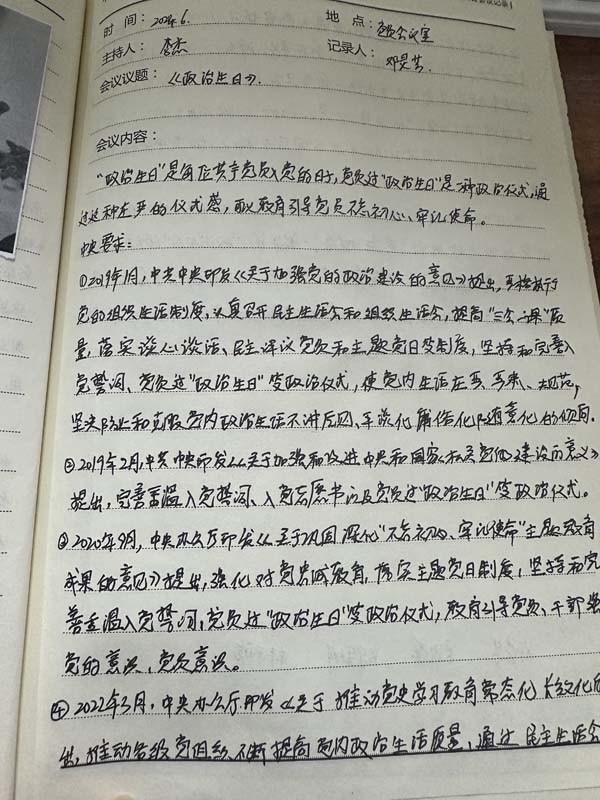 会议记录
时 间：2024.6.
地 点：党员会议室
主持人：李杰
记录人：
会议议题：《政治生日》.
会议内容：
"政治生日"是每位共产党员入党的日子，党员过"政治生日"是一种政治仪式，通
过这种庄严的仪式感，可以教育引导党员不忘初心、牢记使命。
中央要求：
①2019年1月，中共中央印发《关于加强党的政治建设的意见》提出，严格执行
党的组织生活制度，认真召开民主生活会和组织生活会，提高"三会一课"质
量，落实谈心谈话、民主评议党员和主题党日等制度，坚持和完善入
党誓词、党员过"政治生日"等政治仪式，使党内生活庄重、严肃、规范，
坚决防止和克服党内政治生活不讲原则、平淡化庸俗化随意化的倾向.
②2019年2月，中共中央印发《关于加强和改进中央和国家机关党的建设的意见》
提出，完善重温入党誓词、入党志愿书以及党员过"政治生日"等政治仪式。
③2020年9月，中央办公厅印发《关于巩固深化"不忘初心、牢记使命"主题教育
成果的意见》提出，强化对党忠诚教育，落实主题党日制度，坚持和完
善重温入党誓词，党员过"政治生日"等政治仪式，教育引导党员、干部强
党的意识、党员意识。
④2022年3月，中央办公厅印发《关于推动党史学习教育常态化长效化的
出，推动各级党组织不断提高党内政治生活质量，通过民主生活会